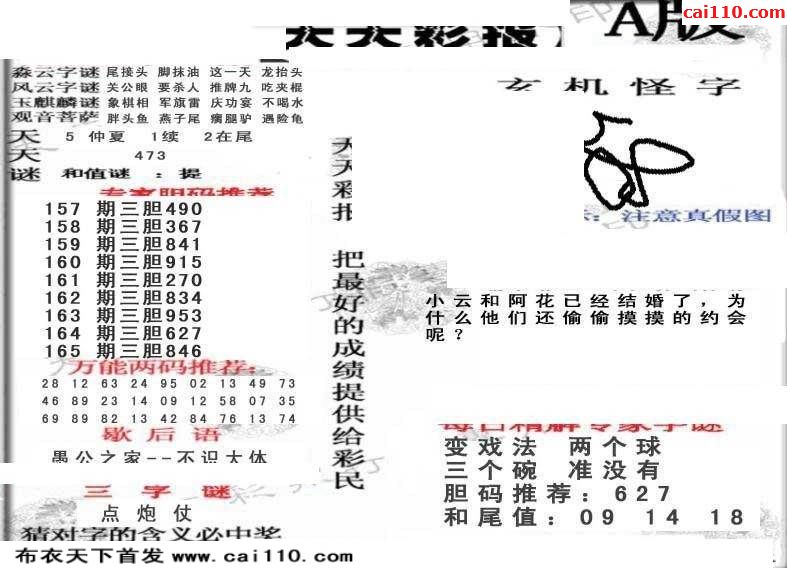 cai110.com
天天彩报 A版
森云字谜 尾接头 脚抹油 这一天 龙抬头
风云字谜 关公眼 要杀人 推牌九 吃夹棍
玉麒麟谜 象棋相 军旗雷 庆功宴 不喝水
观音菩萨 胖头鱼 燕子尾 瘸腿驴 遇险龟
天 5 仲夏 1续 2在尾
天 473
谜 和值谜 : 提
专家胆码推荐
157 期三胆490
158 期三胆367
159 期三胆841
160 期三胆915
161 期三胆270
162 期三胆834
163 期三胆953
164 期三胆627
165 期三胆846
万能两码推荐:
28 12 63 24 95 02 13 49 73
46 89 23 14 09 12 58 07 35
69 89 82 13 42 84 76 13 74
歇后语
愚公之家--不识大体
三字谜
点炮仗
猜对字的含义必中奖
布衣天下首发 www.cai110.com
天天彩报 把最好的成绩提供给彩民
玄机怪字
: 注意真假图
小云和阿花已经结婚了，为
什么他们还偷偷摸摸的约会
呢？
每日精解专家字谜
变戏法 两个球
三个碗 准没有
胆码推荐: 627
和尾值: 09 14 18